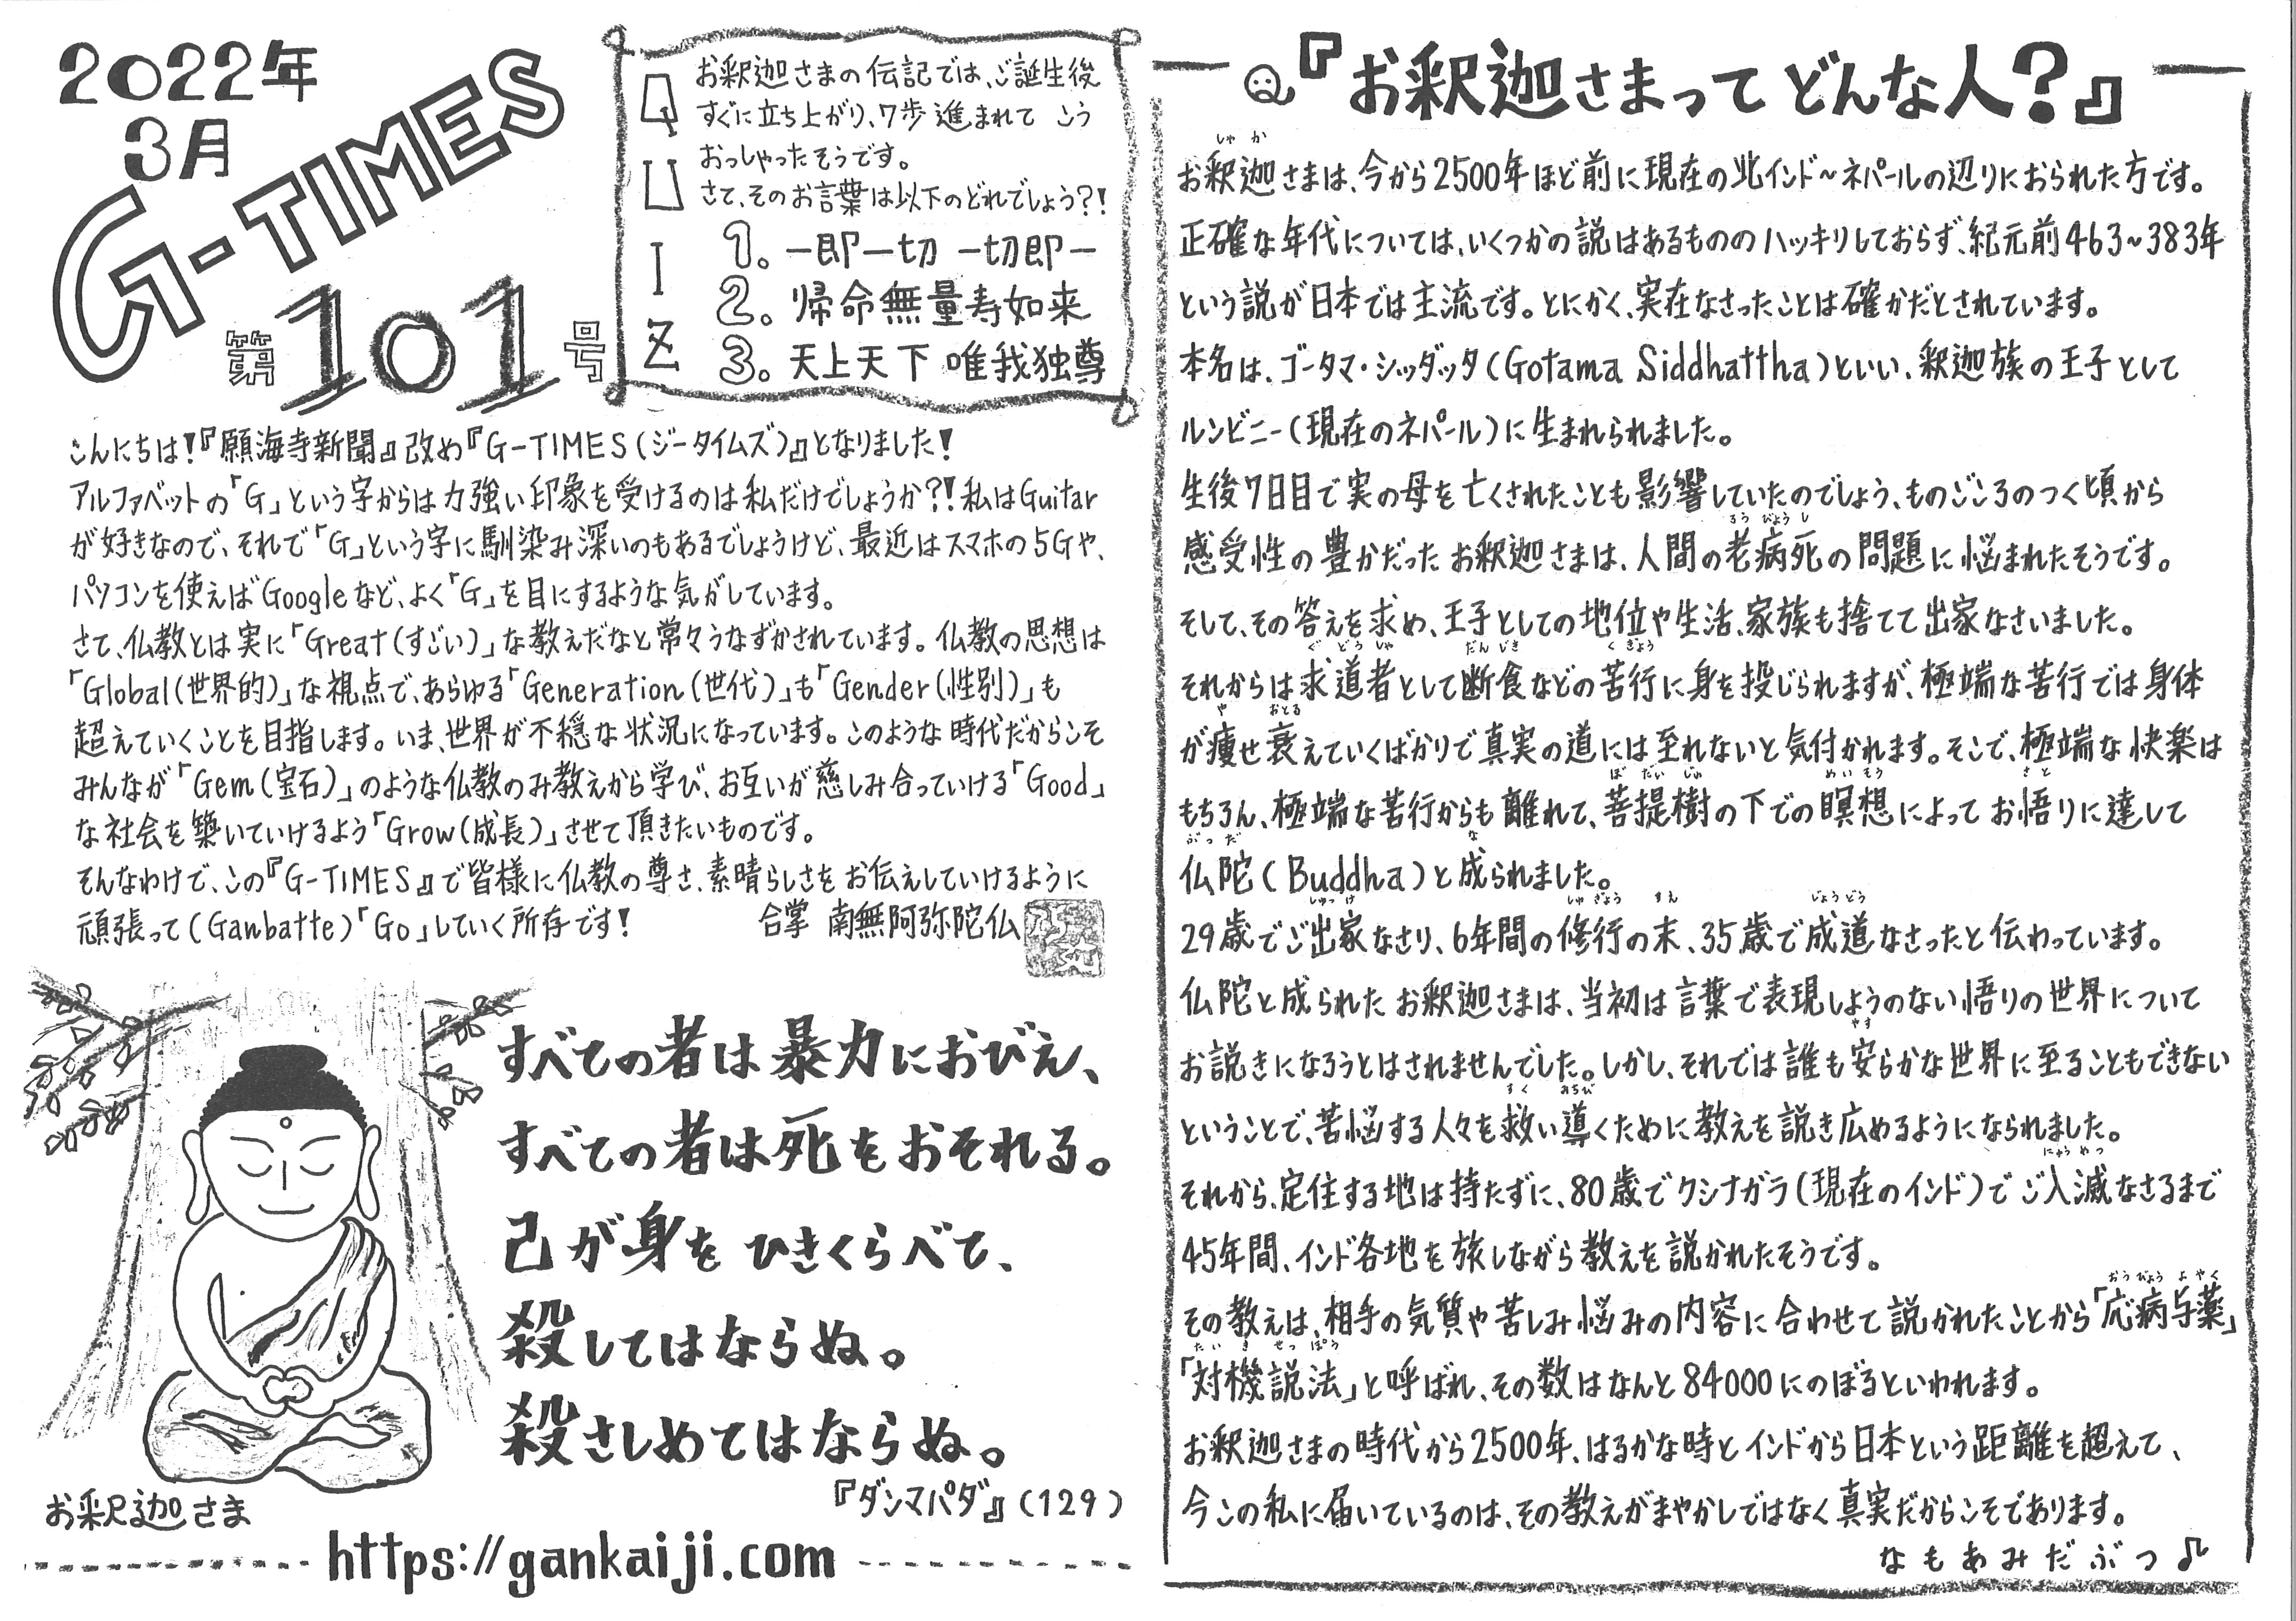 2022年
3月
G-TIMES
第101号
QUIZ
お釈迦さまの伝記では、ご誕生後
すぐに立ち上がり、7歩進まれて こう
おっしゃったそうです。
さて、そのお言葉は以下のどれでしょう?!
1. 一即一切 一切即一
2. 帰命無量寿如来
3. 天上天下 唯我独尊
こんにちは!『願海寺新聞』改め『G-TIMES(ジータイムズ)』となりました!
アルファベットの「G」という字からは力強い印象を受けるのは私だけでしょうか?!私はGuitar
が好きなので、それで「G」という字に馴染み深いのもあるでしょうけど、最近はスマホの5Gや、
パソコンを使えばGoogleなど、よく「G」を目にするような気がしています。
さて、仏教とは実に「Great(すごい)」な教えだなと常々うなずかされています。仏教の思想は
「Global(世界的)」な視点で、あらゆる「Generation(世代)」も「Gender(性別)」も
超えていくことを目指します。いま、世界が不穏な状況になっています。このような時代だからこそ
みんなが「Gem(宝石)」のような仏教のみ教えから学び、お互いが慈しみ合っていける「Good」
な社会を築いていけるよう「Grow(成長)」させて頂きたいものです。
そんなわけで、この『G-TIMES』で皆様に仏教の尊さ、素晴らしさをお伝えしていけるように
頑張って(Ganbatte)「Go」していく所存です! 合掌 南無阿弥陀仏
すべての者は暴力におびえ、
すべての者は死をおそれる。
己が身をひきくらべて、
殺してはならぬ。
殺さしめてはならぬ。
『ダンマパダ』(129)
お釈迦さま
https://gankaiji.com
『お釈迦さまってどんな人?』
しゃ か
お釈迦さまは、今から2500年ほど前に現在の北インド~ネパールの辺りにおられた方です。
正確な年代については、いくつかの説はあるもののハッキリしておらず、紀元前463~383年
という説が日本では主流です。とにかく、実在なさったことは確かだとされています。
本名は、ゴータマ・シッダッタ(Gotama Siddhattha)といい、釈迦族の王子として
ルンビニー(現在のネパール)に生まれられました。
生後7日目で実の母を亡くされたことも影響していたのでしょう、ものごころのつく頃から
ろう びょう し
感受性の豊かだったお釈迦さまは、人間の老病死の問題に悩まれたそうです。
そして、その答えを求め、王子としての地位や生活、家族も捨てて出家なさいました。
ぐ どう しゃ だん じき く ぎょう
それからは求道者として断食などの苦行に身を投じられますが、極端な苦行では身体
や おとろ
が痩せ衰えていくばかりで真実の道には至れないと気付かれます。そこで、極端な快楽は
ぼ だい じゅ めい そう さと
もちろん、極端な苦行からも離れて、菩提樹の下での瞑想によってお悟りに達して
ぶっ だ な
仏陀(Buddha)と成られました。
しゅっ け しゅ ぎょう すえ じょう どう
29歳でご出家なさり、6年間の修行の末、35歳で成道なさったと伝わっています。
仏陀と成られたお釈迦さまは、当初は言葉で表現しようのない悟りの世界について
やす
お説きになろうとはされませんでした。しかし、それでは誰も安らかな世界に至ることもできない
すく みちび
ということで、苦悩する人々を救い導くために教えを説き広めるようになられました。
にゅう めつ
それから、定住する地は持たずに、80歳でクシナガラ(現在のインド)でご入滅なさるまで
45年間、インド各地を旅しながら教えを説かれたそうです。
おう びょう よ やく
その教えは、相手の気質や苦しみ悩みの内容に合わせて説かれたことから「応病与薬」
たい き せっ ぽう
「対機説法」と呼ばれ、その数はなんと84000にのぼるといわれます。
お釈迦さまの時代から2500年、はるかな時とインドから日本という距離を超えて、
今この私に届いているのは、その教えがまやかしではなく真実だからこそであります。
なもあみだぶつ♪